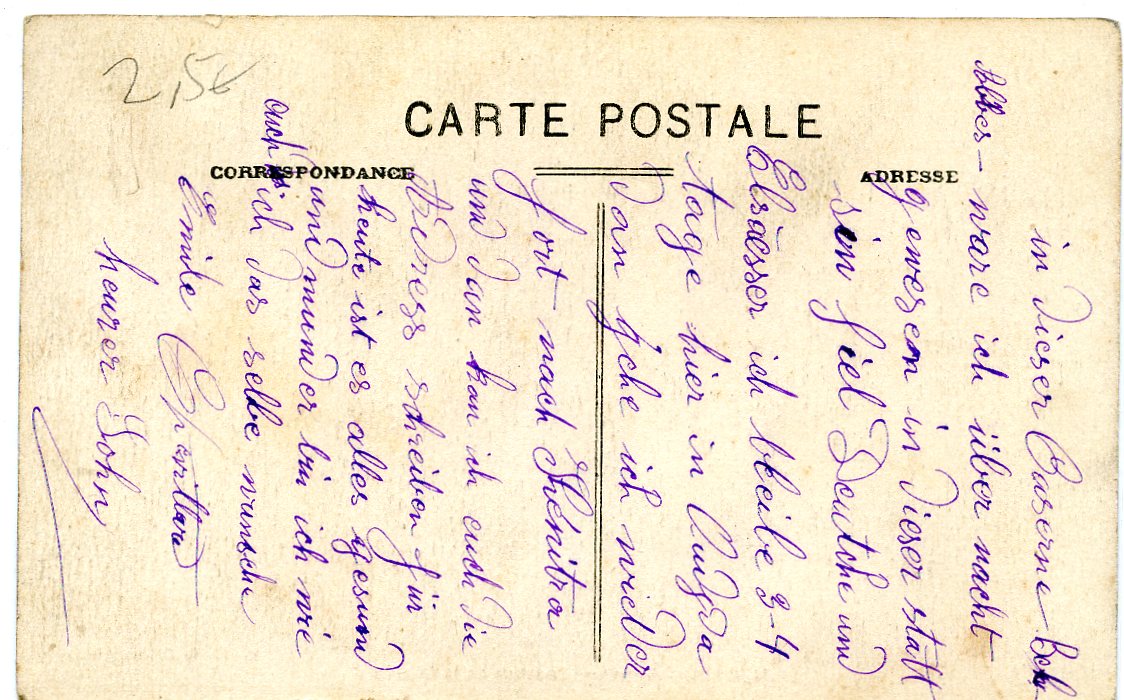 2,5€
CARTE POSTALE
CORRESPONDANCE
ADRESSE
in dieser Caserne Bel
Abbes – ware ich über nacht
gewesen in dieser statt
sin fiel Deutche und
Elsässer ich bleibe 3-4
tage hier in Ougda
dan gehe ich wieder
fort nach Khénitra
und dan kan ich euch die
Adress schreiben für
heute ist es alles gesund
und munder bin ich wie
auch ich das selbe wunsche
Emile
heurer Sohn